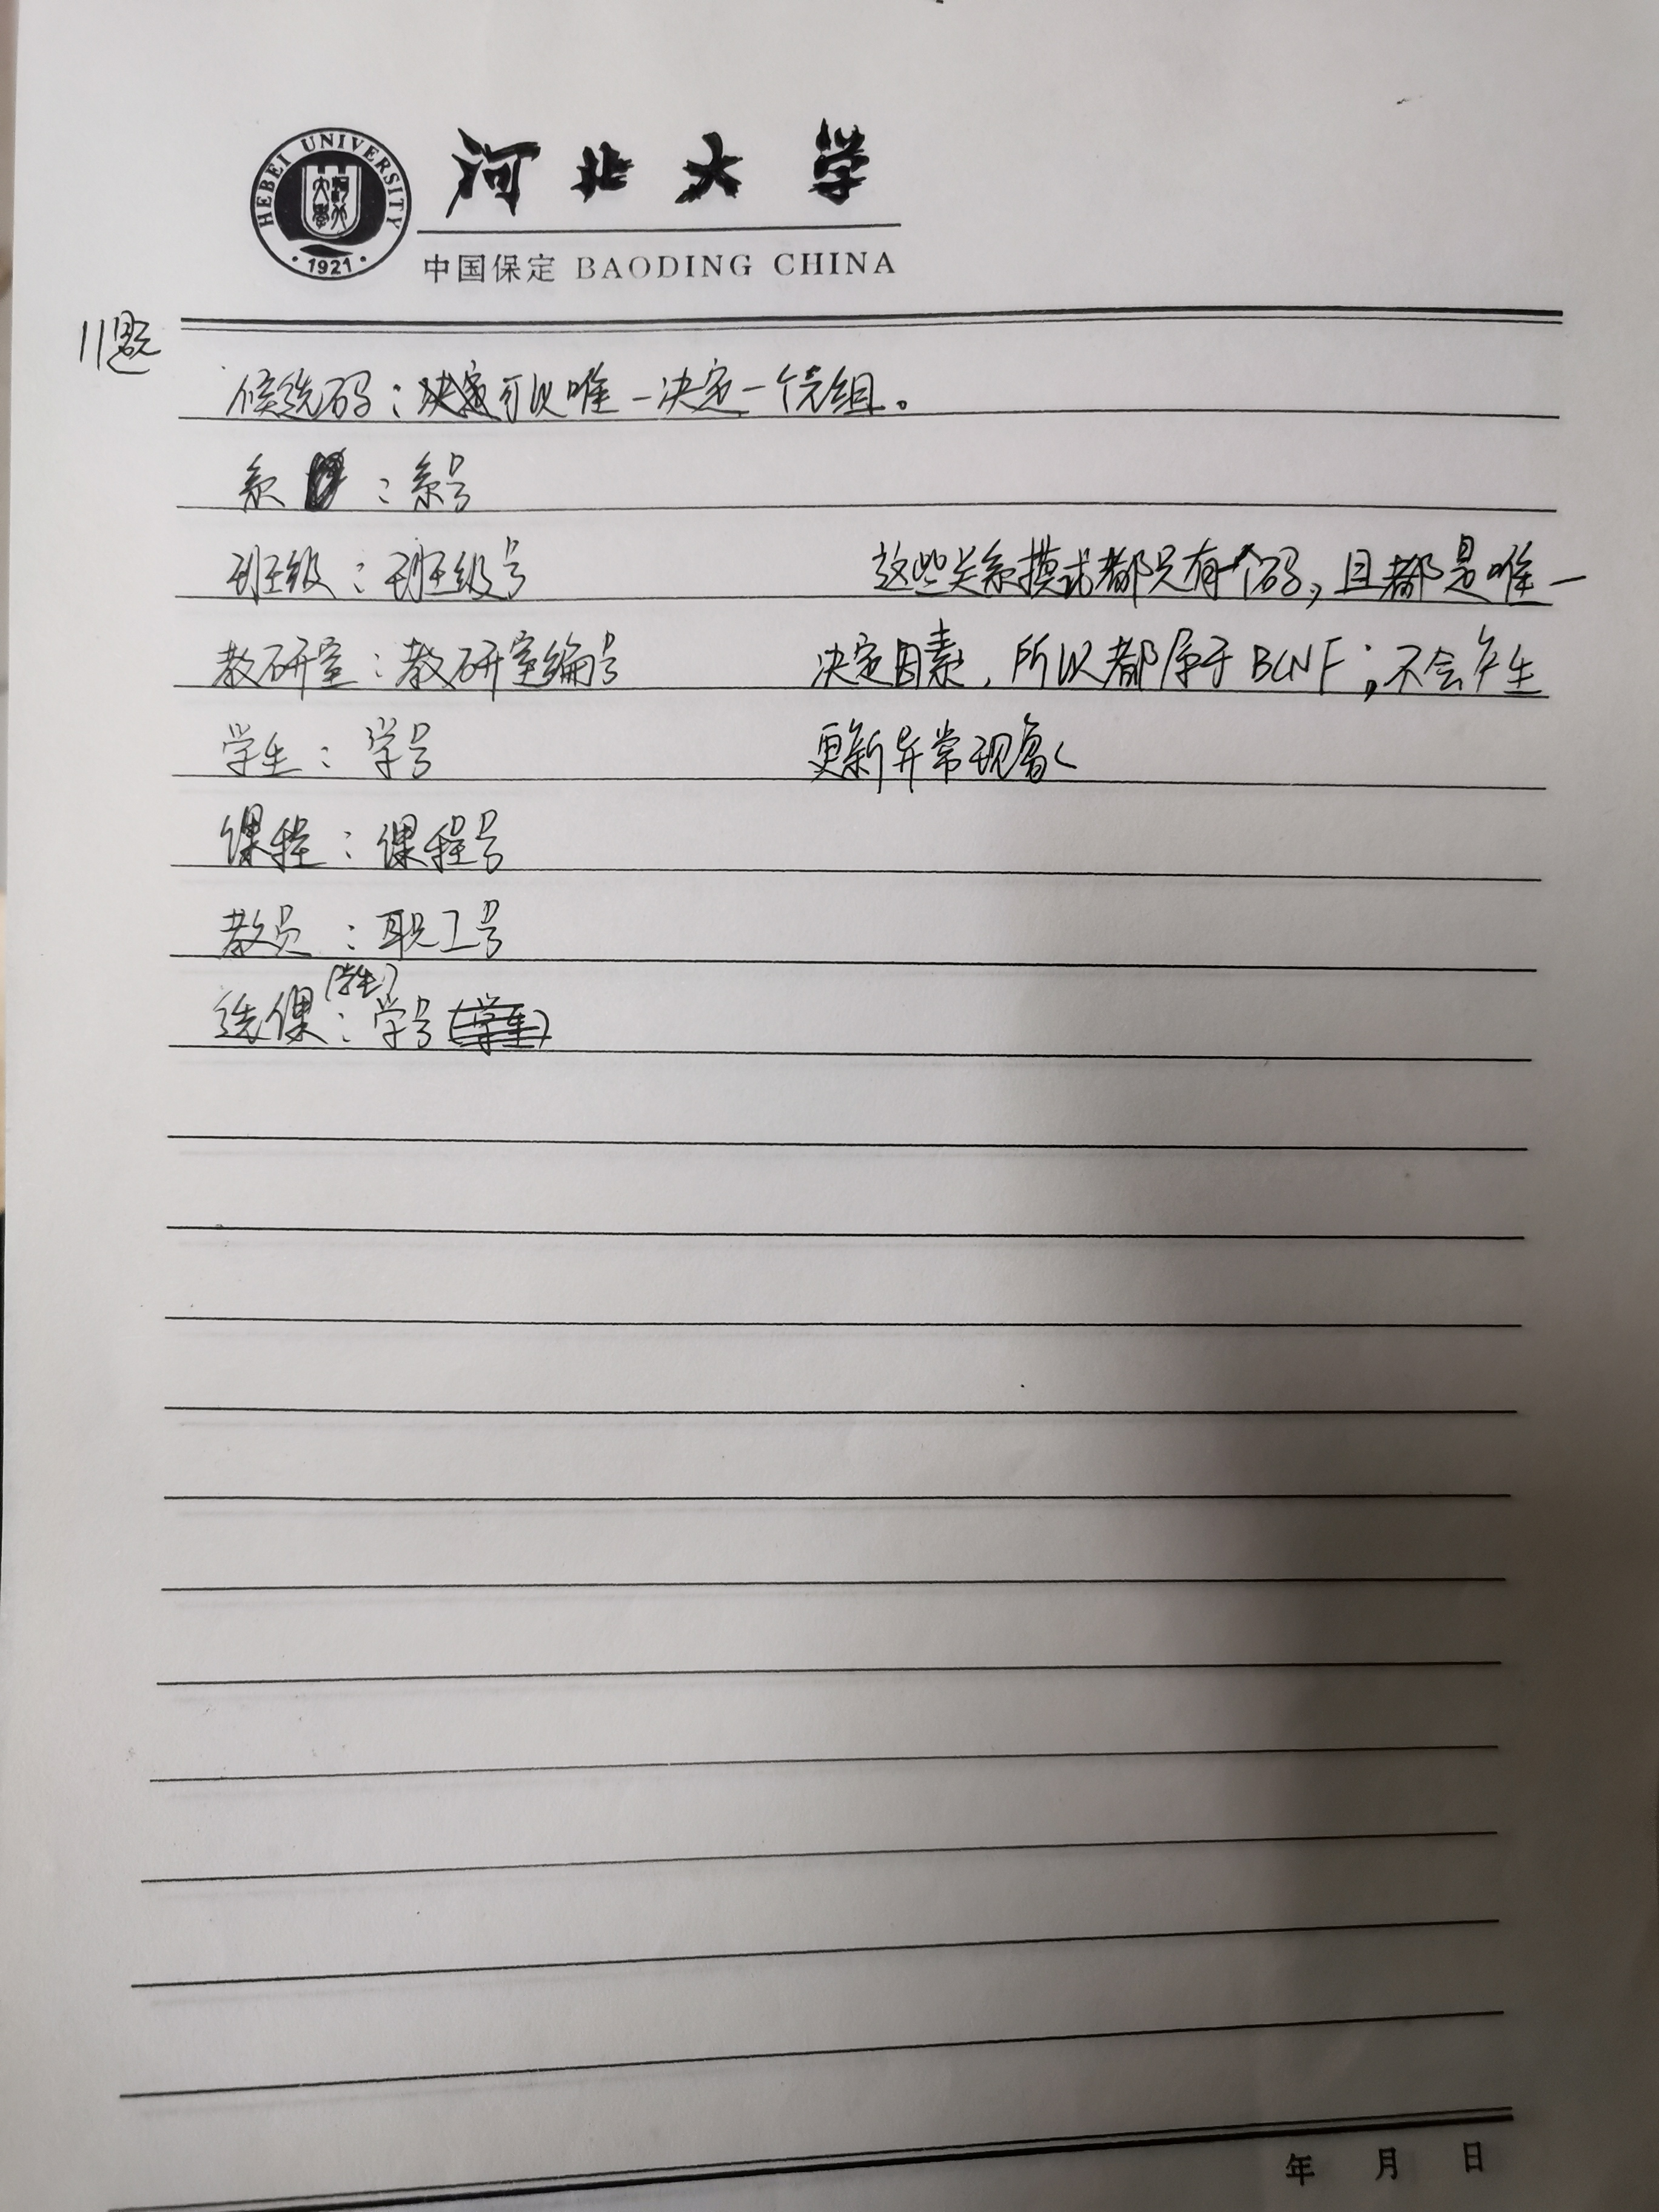 HEBEI UNIVERSITY
1921
河北大学
中国保定 BAODING CHINA
11题
候选码：决定可以唯一决定一个元组。
系：系号
班级：班级号
教研室：教研室编号
学生：学号
课程：课程号
教员：职工号
(学生)
选课：学号(学生)
这些关系模式都只有一个码，且都是唯一
决定因素，所以都属于BCNF；不会产生
更新异常现象
年 月 日